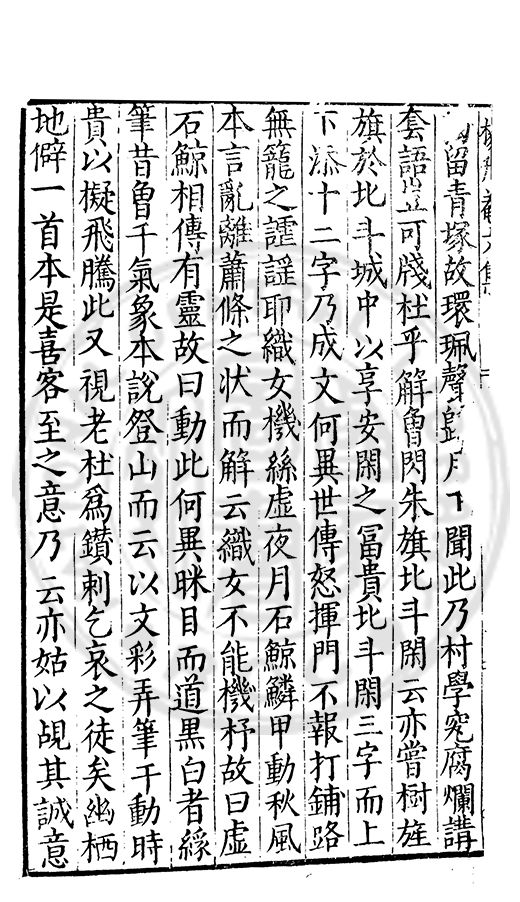 留青塚故環珮聲歸月下聞此乃村學究腐爛講
套語豈可牋杜乎解曾閃朱旗北斗閑云亦嘗樹旌
旗於北斗城中以享安閑之冨貴北斗閑三字而上
下添十二字乃成文何異世傳怒揮門不報打鋪路
無籠之謔謡耶織女機絲虛夜月石鯨鱗甲動秋風
本言亂離蕭條之状而解云織女不能機杼故曰虛
石鯨相傳有靈故曰動此何異眯目而道黒白者綵
筆昔曽干氣象本說登山而云以文彩弄筆干動時
貴以擬飛騰此又視老杜爲鑚刺乞哀之徒矣幽栖
地僻一首本是喜客至之意乃云亦姑以覘其誠意